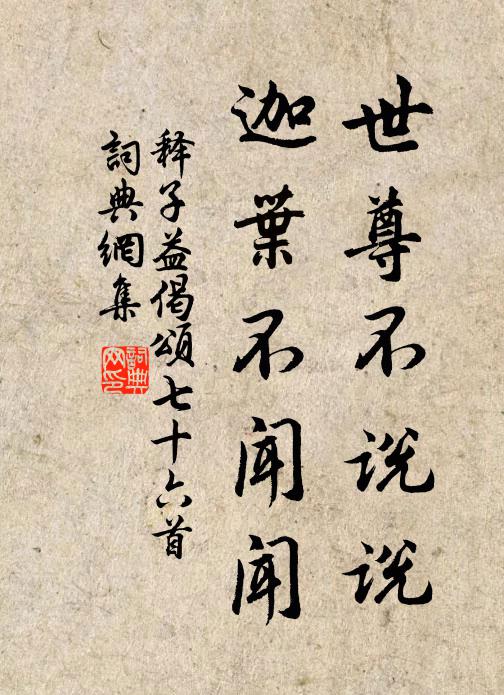 世尊不说说
迦葉不聞聞
释子益偈頌七十六首
詞典網集
詞典网印